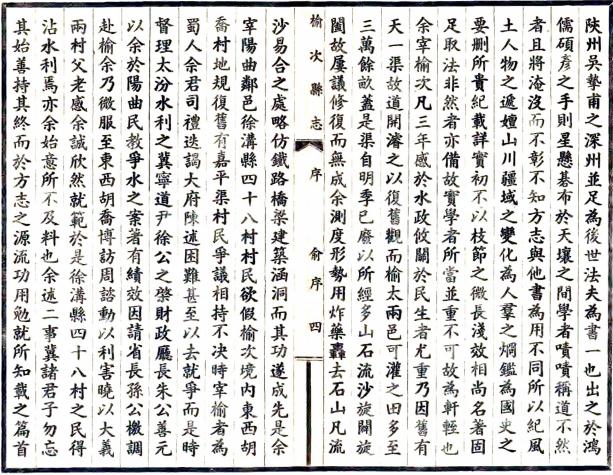 陝州吳摯甫之深州並足為後世法夫為書一也出之於鴻
儒碩彥之手則星懸棊布於天壤之間學者嘖嘖稱道不然
者且將淹沒而不彰不知方志與他書為用不同所以紀風
土人物之遞嬗山川疆域之變化為人羣之烱鑑為國史之
要刪所貴紀載詳實初不以枝節之微長淺效相尚名著固
足取法非然者亦備故實學者所當並重不可故為軒輊也
余宰榆次凡三年感於水政攸關於民生者尤重乃因舊有
天一渠故道開濬之以復舊觀而榆太兩邑可灌之田多至
三萬餘畝蓋是渠自明季已廢以所經多山石流沙旋開旋
闔故屢議修復而無成余測度形勢用炸藥轟去石山凡流
榆次縣志 序 俞序 四
沙易合之處略仿鐵路橋梁建築涵洞而其功遂成先是余
宰陽曲鄰邑徐溝縣四十八村村民欲假榆次境内東西胡
喬村地規復舊有嘉平渠村民爭議相持不決時宰榆者為
蜀人余君司禮迭謁大府陳述困難甚至以去就爭而是時
督理太汾水利之冀寧道尹徐公之棨財政廳長朱公善元
以余於陽曲民教爭水之案著有績效因請省長孫公檄調
赴榆余乃微服至東西胡喬博訪周諮動以利害曉以大義
兩村父老感余誠欣然就範於是徐溝縣四十八村之民得
沾水利焉亦余始意所不及料也余述二事冀諸君子勿忘
其始善持其終而於方志之源流功用勉就所知載之篇首